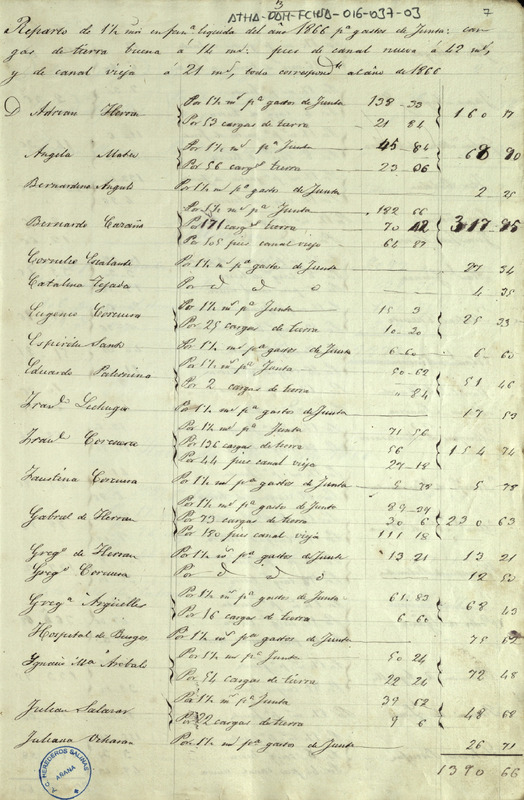 ATHA-DAH-FCHSA-016-037-03
7
Reparto de 1½ m en fan.ª liquida del año 1866 p.ª gastos de Junta: car-
gas de tierra buena á 14 ms: pies de canal nuevo á 42 ms,
y de canal viejo á 21 ms, todo correspond.te al año de 1866
D Adrian Herran Por 1½ m p.ª gastos de Junta 138 - 33
Por 53 cargas de tierra 21 84 160 17
Angela Mate Por 1½ m p.ª Junta 45 84
Por 56 cargs tierra 23 06 68 90
Bernardino Angulo Por 1½ m p.ª gastos de Junta 2 25
Bernardo Cazaña Por 1½ m p.ª Junta 182 66
Por 171 cargs tierra 70 42
Por 105 pies canal viejo 64 87 317 95
Cornelio Escalante Por 1½ m p.ª gastos de Junta 27 34
Catalina Tejada Por d d d 4 35
Eugenio Corcuera Por 1½ m p.ª Junta 15 3
Por 25 cargas de tierra 10 - 30 25 33
Espiritu Santo Por 1½ m p.ª gastos de Junta 6 - 60 6 - 60
Eduardo Paternina Por 1½ m p.ª Junta 50 - 62
Por 2 cargas de tierra " 84 51 46
Por 1½ m p.ª gastos de Junta 17 53
Corcuera Por 1½ m p.ª Junta 71 56
Por 136 cargas de tierra 56
Por 44 pies canal viejo 27 - 18 154 74
Faustina Corcuera Por 1½ m p.ª gastos de Junta 5 78 5 78
Gabriel de Herran Por 1½ m p.ª gastos de Junta 89 - 34
Por 73 cargas de tierra 30 6
Por 180 pies canal viejo 111 18 230 63
Greg.º de Herran Por 1½ m p.ª gastos de Junta 13 21 13 21
Greg.º Corcuera Por d d d 12 50
Greg.ª Argüelles Por 1½ m p.ª gastos de Junta 61 - 83
Por 16 cargas de tierra 6 - 60 68 43
Hospital de Burgos Por 1½ m p.ª gastos de Junta 75 62
Ignacio M.ª Por 1½ m p.ª Junta 50 24
Por 54 cargas de tierra 22 24 72 48
Julian Salazar Por 1½ m p.ª Junta 39 62
Por 22 cargas de tierra 9 6 48 68
Juliana Ochoran Por 1½ m p.ª gastos de Junta 26 71
1390 66
A.C. HEREDEROS SALINAS
AÑANA